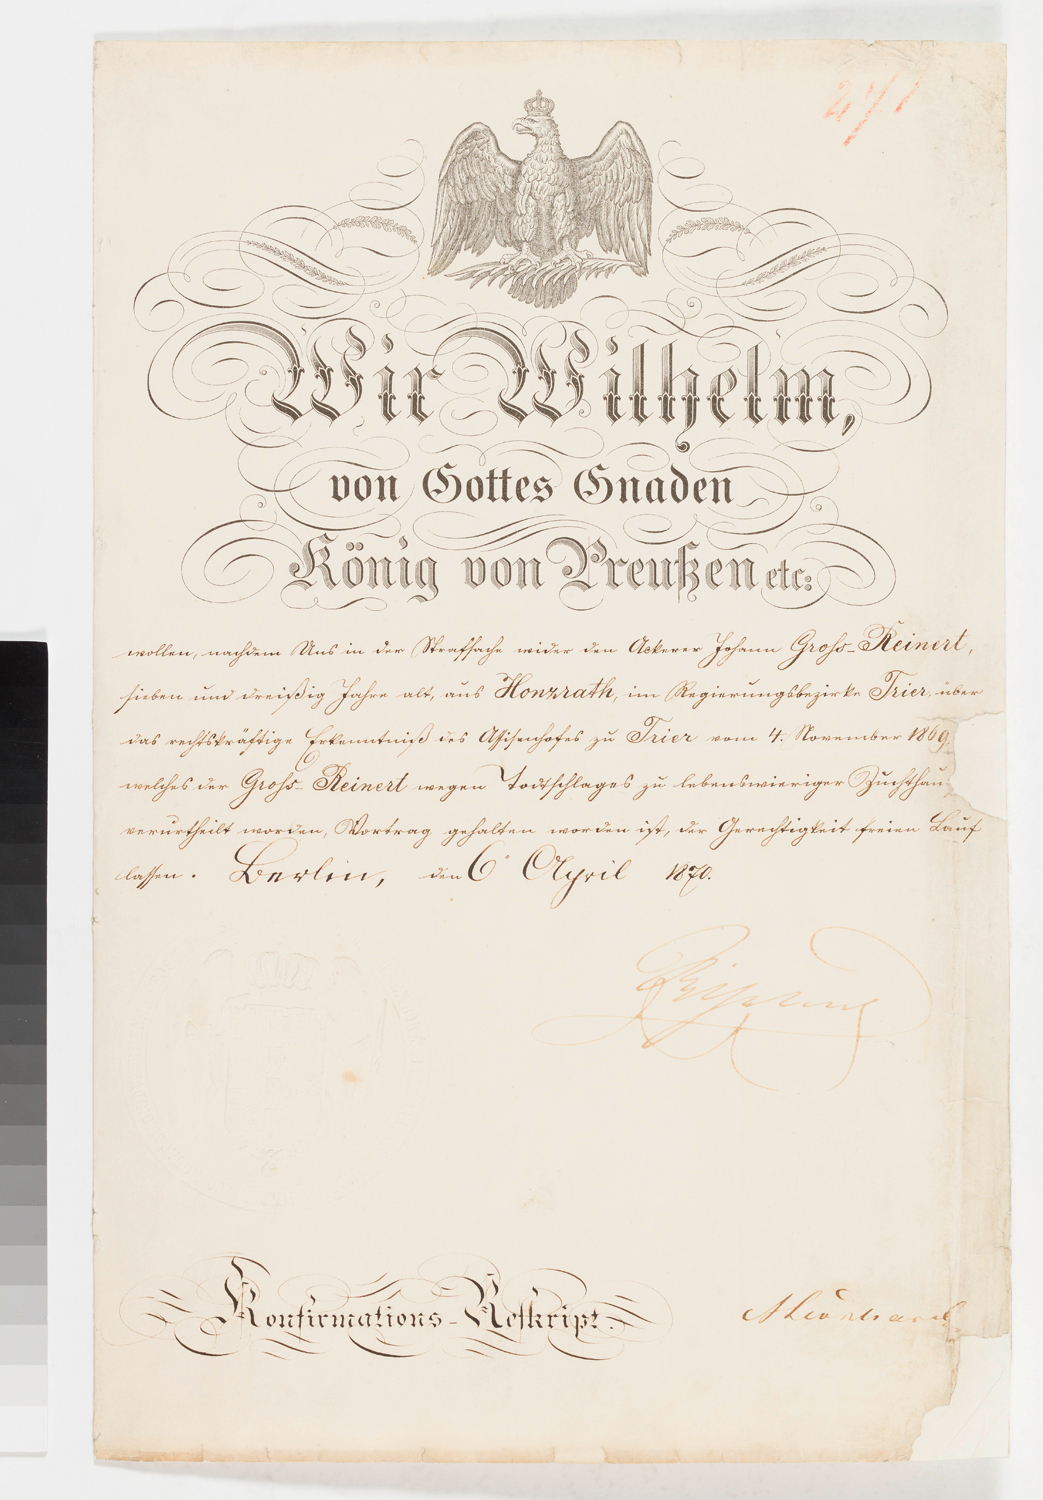 271
Wir Wilhelm,
von Gottes Gnaden
König von Preußen etc:
wollen, nachdem Uns in der Strafsache wider den Ackerer Johann Groß-Reinert,
sieben und dreißig Jahre alt, aus Honzrath, im Regierungsbezirke Trier, über
das rechtskräftige Erkenntniß des Assisenhofes zu Trier vom 4. November 1869,
welches der Groß-Reinert wegen Todtschlages zu lebenswieriger Zuchthau
verurtheilt worden, Vortrag gehalten worden ist, der Gerechtigkeit freien Lauf
lassen. Berlin, den 6. April 1870.
Konfirmations-Reskript.